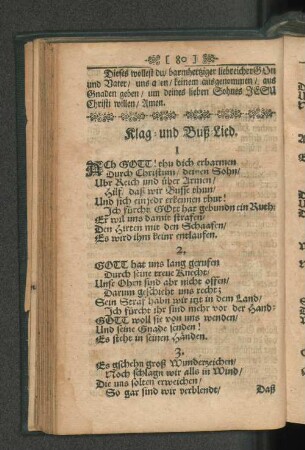 [ 80 ]
Dieses wollest du/ barmhertziger liebreicher GOtt
und Vater/ uns allen/ keinem ausgenommen/ aus
Gnaden geben/ um deines lieben Sohnes JESU
Christi willen/ Amen.
Klag- und Buß Lied.
1
ACh GOTT! thu dich erbarmen
Durch Christum/ deinen Sohn/
Ubr Reich und über Armen/
Hilf/ daß wir Busse thun/
Und sich ein jedr erkennen thut!
Ich fürcht GOtt hat gebundn ein Ruth:
Er wil uns damit strafen/
Den Hirten mit den Schaafen/
Es wird ihm keinr entlaufen.
2.
GOTT hat uns lang gerufen
Durch seine treue Knecht/
Unse Ohen sind ahr nicht offen/
Darum geschieht uns recht:
Sein Straf habn wir itzt in dem Land/
Ich fürcht ihr sind mehr vor der Hand:
GOTT woll sie von uns wenden/
Und seine Gnade senden!
Es steht in seinen Händen.
3.
Es gschehn groß Wunderzeichen/
Noch schlagn wir alls in Wind/
Die uns solten erweichen/
So gar sind wir verblendt/
Daß